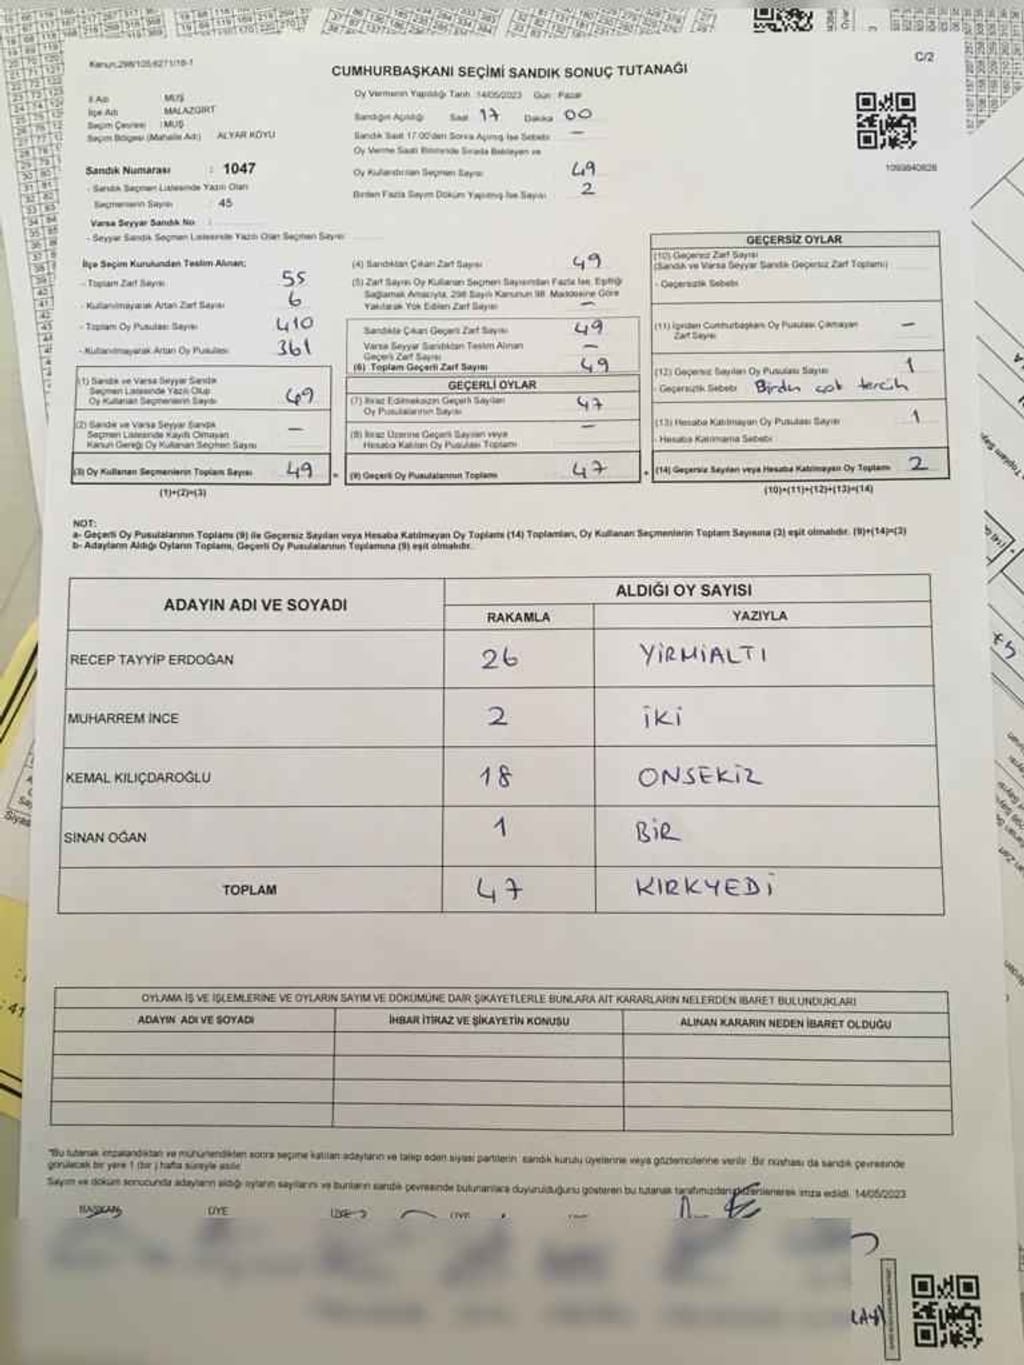 Kanun:298/105;6271/18-1
C/2
CUMHURBAŞKANI SEÇİMİ SANDIK SONUÇ TUTANAĞI
İl Adı MUŞ
İlçe Adı MALAZGİRT
Seçim Çevresi : MUŞ
Seçim Bölgesi (Mahalle Adı) ALYAR KÖYÜ
Sandık Numarası : 1047
- Sandık Seçmen Listesinde Yazılı Olan
Seçmenlerin Sayısı : 45
Varsa Seyyar Sandık No :
- Seyyar Sandık Seçmen Listesinde Yazılı Olan Seçmen Sayısı
Oy Vermenin Yapıldığı Tarih 14/05/2023 Gün Pazar
Sandığın Açıldığı Saat 17 Dakika 00
Sandık Saat 17.00'den Sonra Açılmış İse Sebebi —
Oy Verme Saati Bitiminde Sırada Bekleyen ve
Oy Kullandırılan Seçmen Sayısı 49
Birden Fazla Sayım Döküm Yapılmış İse Sayısı 2
1093840828
İlçe Seçim Kurulundan Teslim Alınan;
- Toplam Zarf Sayısı 55
- Kullanılmayarak Artan Zarf Sayısı 6
- Toplam Oy Pusulası Sayısı 410
- Kullanılmayarak Artan Oy Pusulası 361
(1) Sandık ve Varsa Seyyar Sandık
Seçmen Listesinde Yazılı Olup
Oy Kullanan Seçmenlerin Sayısı 49
(2) Sandık ve Varsa Seyyar Sandık
Seçmen Listesinde Kayıtlı Olmayan
Kanun Gereği Oy Kullanan Seçmen Sayısı —
(3) Oy Kullanan Seçmenlerin Toplam Sayısı 49
(1)+(2)=(3)
(4) Sandıktan Çıkan Zarf Sayısı 49
(5) Zarf Sayısı Oy Kullanan Seçmen Sayısından Fazla İse, Eşitliği
Sağlamak Amacıyla, 298 Sayılı Kanunun 98. Maddesine Göre
Yakılarak Yok Edilen Zarf Sayısı —
Sandıkta Çıkan Geçerli Zarf Sayısı 49
Varsa Seyyar Sandıktan Teslim Alınan
Geçerli Zarf Sayısı —
(6) Toplam Geçerli Zarf Sayısı 49
GEÇERLİ OYLAR
(7) İtiraz Edilmeksizin Geçerli Sayılan
Oy Pusulalarının Sayısı 47
(8) İtiraz Üzerine Geçerli Sayılan veya
Hesaba Katılan Oy Pusulası Toplamı —
= (9) Geçerli Oy Pusulalarının Toplamı 47
GEÇERSİZ OYLAR
(10) Geçersiz Zarf Sayısı
(Sandık ve Varsa Seyyar Sandık Geçersiz Zarf Toplamı)
- Geçersizlik Sebebi
(11) İçinden Cumhurbaşkanı Oy Pusulası Çıkmayan
Zarf Sayısı —
(12) Geçersiz Sayılan Oy Pusulası Sayısı 1
- Geçersizlik Sebebi Birden çok tercih
(13) Hesaba Katılmayan Oy Pusulası Sayısı 1
- Hesaba Katılmama Sebebi
+ (14) Geçersiz Sayılan veya Hesaba Katılmayan Oy Toplamı 2
(10)+(11)+(12)+(13)=(14)
NOT:
a- Geçerli Oy Pusulalarının Toplamı (9) ile Geçersiz Sayılan veya Hesaba Katılmayan Oy Toplamı (14) Toplamları, Oy Kullanan Seçmenlerin Toplam Sayısına (3) eşit olmalıdır. (9)+(14)=(3)
b- Adayların Aldığı Oyların Toplamı, Geçerli Oy Pusulalarının Toplamına (9) eşit olmalıdır.
ADAYIN ADI VE SOYADI
ALDIĞI OY SAYISI
RAKAMLA YAZIYLA
RECEP TAYYİP ERDOĞAN 26 YİRMİALTI
MUHARREM İNCE 2 İKİ
KEMAL KILIÇDAROĞLU 18 ONSEKİZ
SİNAN OĞAN 1 BİR
TOPLAM 47 KIRKYEDİ
OYLAMA İŞ VE İŞLEMLERİNE VE OYLARIN SAYIM VE DÖKÜMÜNE DAİR ŞİKAYETLERLE BUNLARA AİT KARARLARIN NELERDEN İBARET BULUNDUKLARI
ADAYIN ADI VE SOYADI İHBAR İTİRAZ VE ŞİKAYETİN KONUSU ALINAN KARARIN NEDEN İBARET OLDUĞU
*Bu tutanak imzalandıktan ve mühürlendikten sonra seçime katılan adayların ve talep eden siyasi partilerin sandık kurulu üyelerine veya gözlemcilerine verilir. Bir nüshası da sandık çevresinde
görülecek bir yere 1 (bir) hafta süreyle asılır.
Sayım ve döküm sonucunda adayların aldığı oyların sayılarını ve bunların sandık çevresinde bulunanlara duyurulduğunu gösteren bu tutanak tarafımızdan düzenlenerek imza edildi. 14/05/2023
BAŞKAN ÜYE ÜYE ÜYE